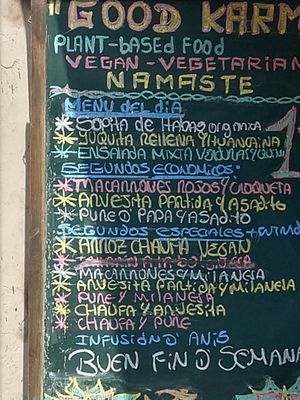 "GOOD KARM
PLANT-BASED FOOD
VEGAN-VEGETARIAN
NAMASTE
MENU DEL DIA
* SOPITA DE HABAS ORGANICA
* YUQUITA RELLENA Y HUANCAINA
* ENSALADA MIXTA VERDURAS
SEGUNDOS ECONOMICOS:
* MACARRONES ROJOS/CROQUETA
* ARVEJITA PARTIDA Y ASADITO
* PURE D PAPA Y ASADITO
SEGUNDOS ESPECIALES
* ARROZ CHAUFA VEGAN
* MACARRONES Y MILANEIA
* ARVEJITA PARTIDA Y MILANEIA
* PURE Y MILANEIA
* CHAUFA Y ARVEJITA
* CHAUFA Y PURE
INFUSION D' ANIS
BUEN FIN D' SEMANA
1